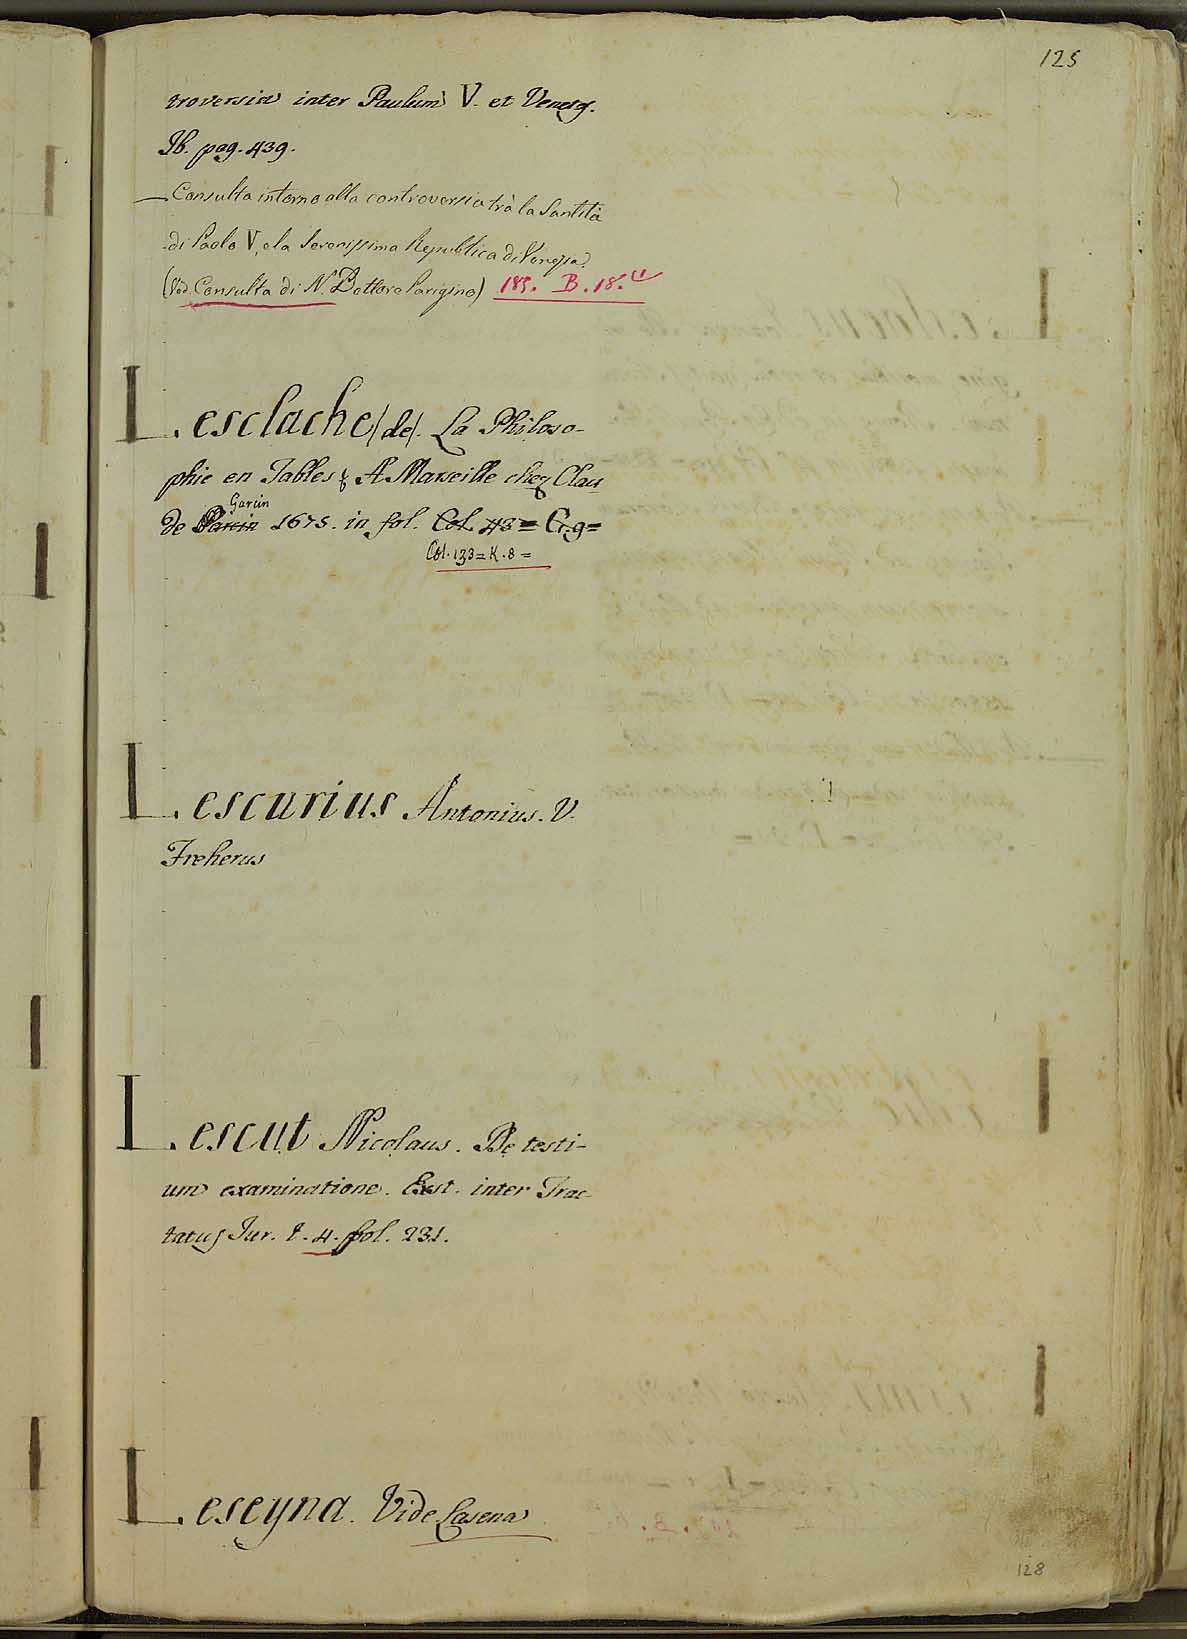 125
troversia inter Paulum V. et Venetos.
Ib. pag. 439.
— Consulta intorno alla controversia trà la Santità
di Paolo V, e la Serenissima Republica di Venezia.
(Ved. Consulta di N. Dottore Parigino) 185. B. 18.
Lesclache (de). La Philoso-
phie en Tables; A Marseille chez Clau
de Parcin Garcin 1675. in fol. Col. 43 = G. 9 =
Col. 133 = K. 8 =
Lescurius Antonius. V.
Freherus
Lescut Nicolaus. De testi-
um examinatione. Exst. inter Trac-
tatus Jur. t. 4. fol. 231.
Leseyna. Vide Lasena
128